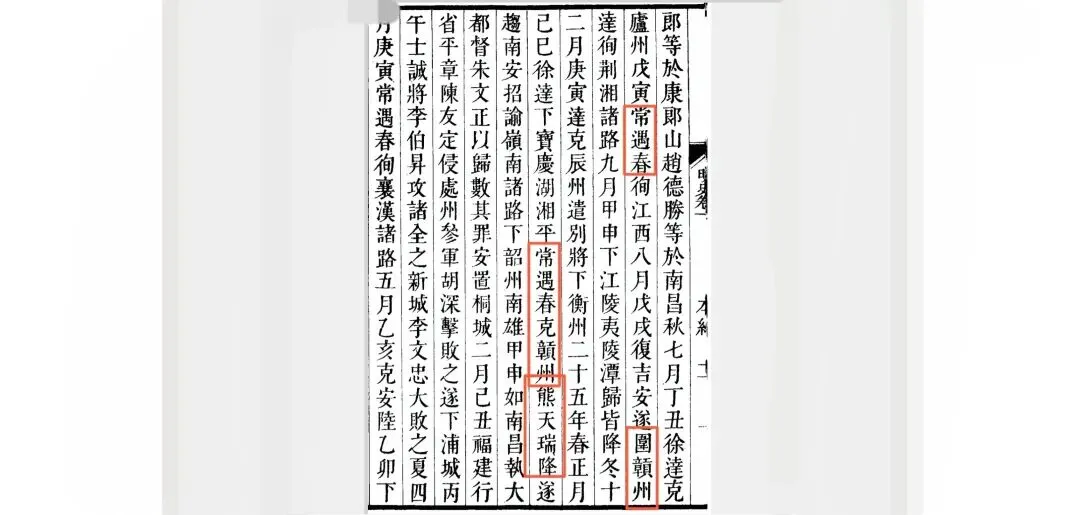 郎等於康郎山趙德勝等於南昌秋七月丁丑徐達克
廬州戊寅常遇春徇江西八月戊戌復吉安遂圍贛州
達徇荆湘諸路九月甲申下江陵夷陵潭歸皆降冬十
二月庚寅達克辰州遣别將下衡州二十五年春正月
己巳徐達下寶慶湖湘平常遇春克贛州熊天瑞降遂
趨南安招諭嶺南諸路下韶州南雄甲申如南昌執大
都督朱文正以歸數其罪安置桐城二月己丑福建行
省平章陳友定侵處州參軍胡深擊敗之遂下浦城丙
午士誠將李伯昇攻諸全之新城李文忠大敗之夏四
月庚寅常遇春徇襄漢諸路五月乙亥克安陸乙卯下